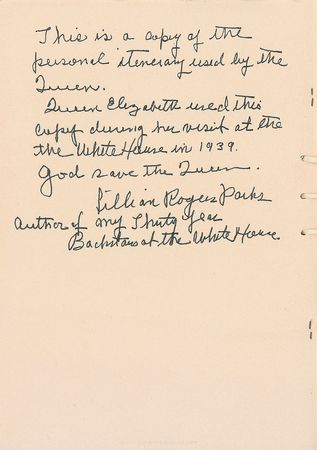 This is a copy of the
personal itenerary used by the
Queen.
Queen Elizabeth used this
Copy during her visit at the
the White House in 1939.
God save the Queen.
Lillian Rogers Parks
Author of My Thirty Year
Backstairs at the White House